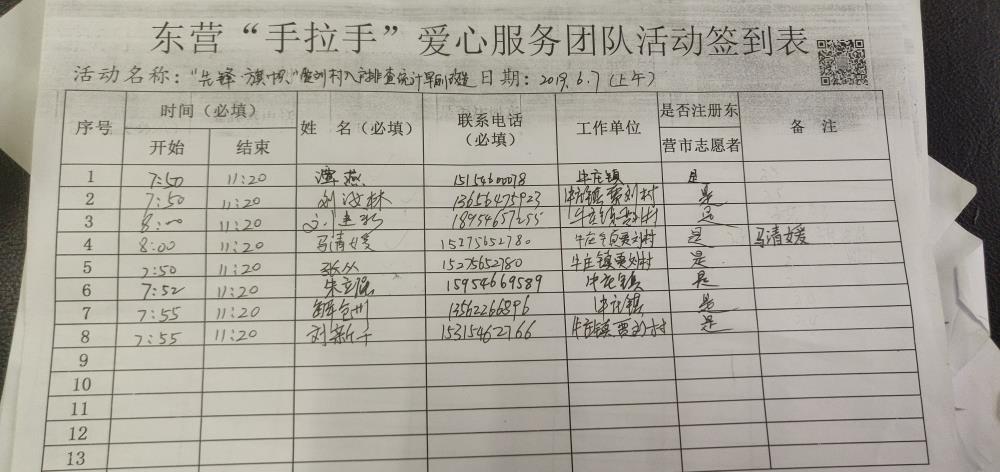 东营“手拉手”爱心服务团队活动签到表
活动名称：“先锋 旗帜” 村入户排查统计 日期：2019.6.7（上午）
序号 时间（必填） 姓 名（必填） 联系电话（必填） 工作单位 是否注册东营市志愿者 备 注
开始 结束
1 7:50 11:20 谭燕 15154600078 牛庄镇 是
2 7:50 11:20 刘汝林 13656475923 牛庄镇贾刘村 是
3 8:00 11:20 牛庄镇贾刘村 是
4 8:00 11:20 马清媛 15275652780 牛庄镇贾刘村 是 马清媛
5 7:50 11:20 张从 15275652780 牛庄镇贾刘村 是
6 7:52 11:20 15954669589 牛庄镇 是
7 7:55 11:20 13562266896 牛庄镇 是
8 7:55 11:20 刘新于 15315462766 牛庄镇贾刘村 是
9
10
11
12
13